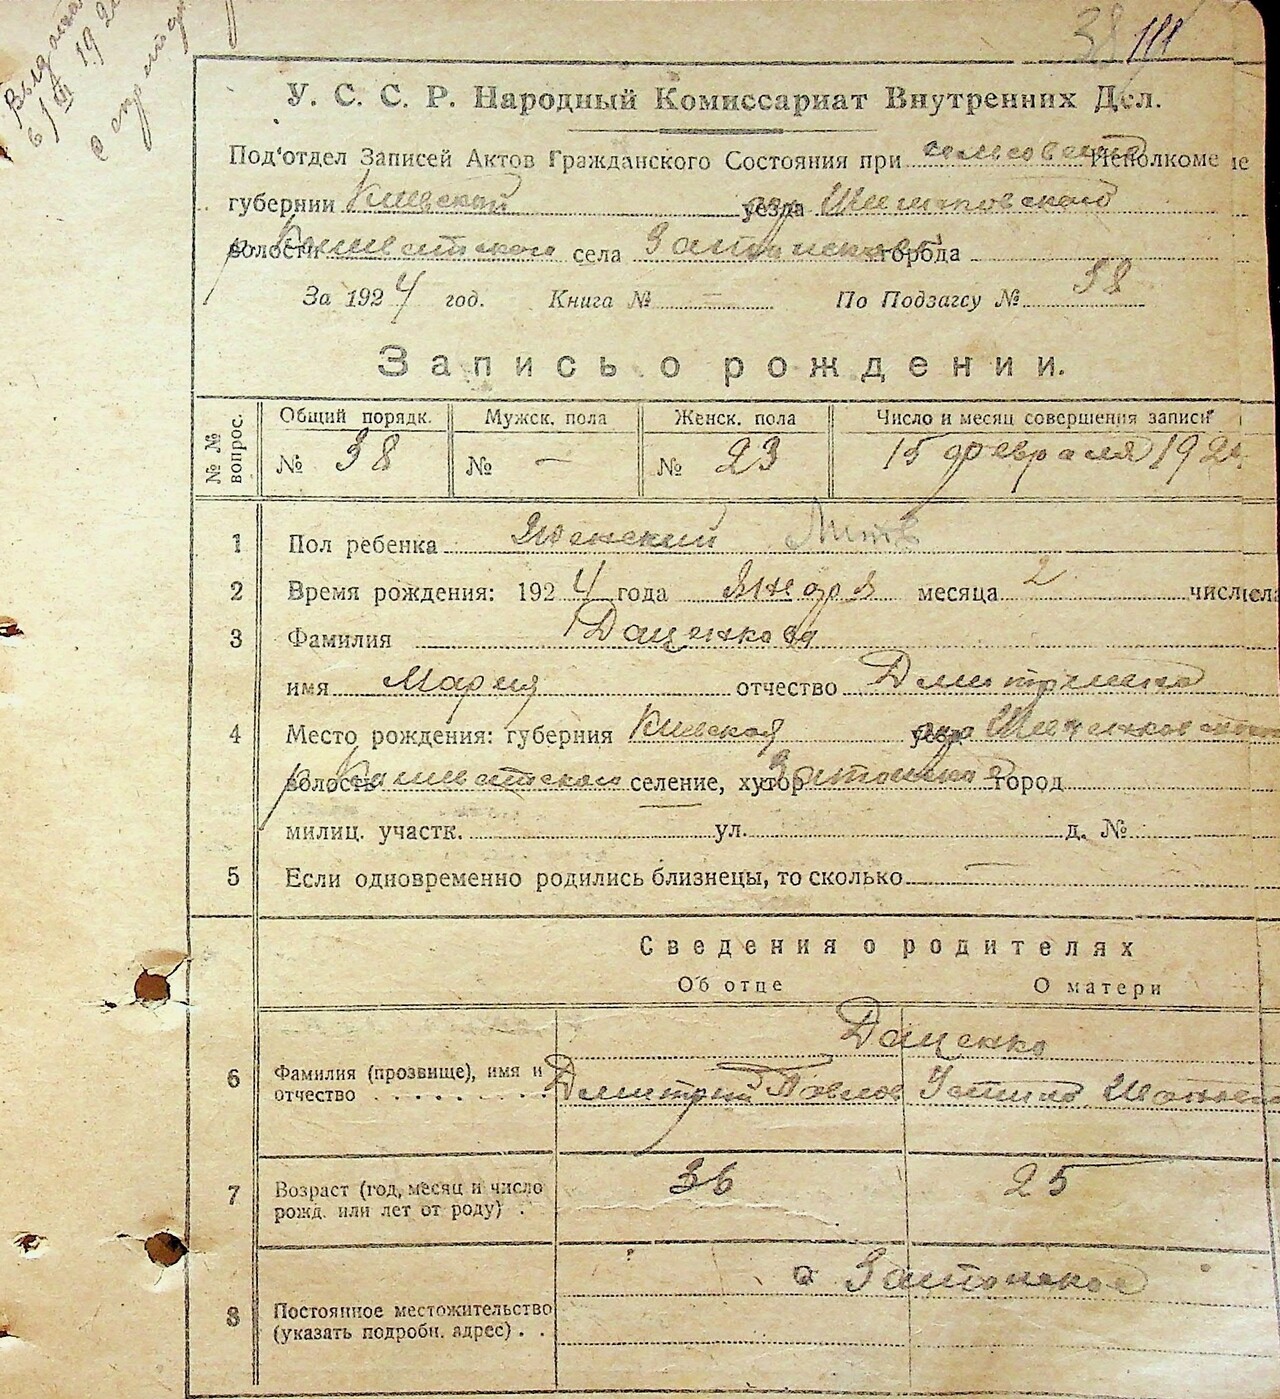 Выдана
6/III 192
38
У. С. С. Р. Народный Комиссариат Внутренних Дел.
Под'отдел Записей Актов Гражданского Состояния при сельсовета Исполкоме ие
губернии Киевской уезда
волости села города
За 1924 год. Книга № — По Подзагсу № 38
Запись о рождении.
№ № вопрос.
Общий порядк. Мужск. пола Женск. пола Число и месяц совершения записи
№ 38 № — № 23 15 февраля 192
1 Пол ребенка Женский
2 Время рождения: 1924 года января месяца 2 числела
3 Фамилия Даценкова
имя Мария отчество Дмитриевна
4 Место рождения: губерния Киевская уезд Шевченковского
волость селение, хутор Затонское город
милиц. участк. ул. д. №
5 Если одновременно родились близнецы, то сколько —
Сведения о родителях
Об отце О матери
Даценко
6 Фамилия (прозвище), имя и
отчество Дмитрий Павлов
7 Возраст (год, месяц и число
рожд. или лет от роду) 36 25
с Затонское
8 Постоянное местожительство
(указать подробн. адрес)